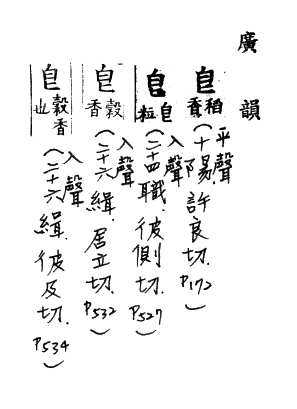 廣韻
皀 稻香 平聲(十陽.許良切.P172)
皀 皀粒 入聲(二十四職.彼側切.P527)
皀 穀香 入聲(二十六緝.居立切.P532)
皀 穀香也 入聲(二十六緝.彼及切.P534)